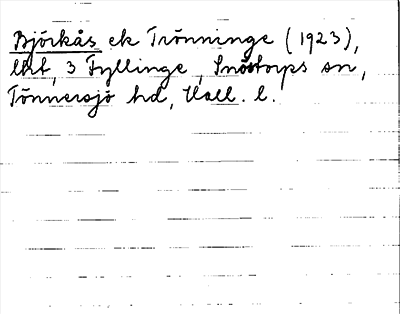 Björkås ek Trönninge (1923),
lht, 3 Fyllinge, Snöstorps sn,
Tönnersjö hd, Hall. l.